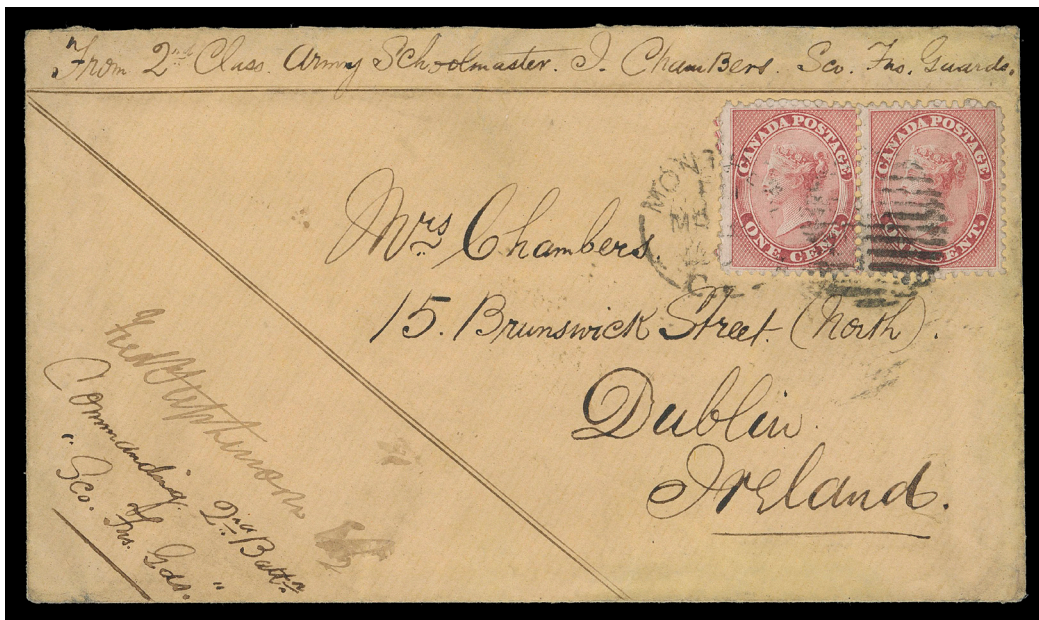 "From 2nd Class Army Schoolmaster. J. Chambers. Sco. Fus. Guards.
CANADA POSTAGE
ONE CENT.
CANADA POSTAGE
CENT.
MONT
Mrs Chambers.
15. Brunswick Street. (North).
Dublin.
Ireland.
Commanding. 2nd Battn
"Sco. Fus. Gds."